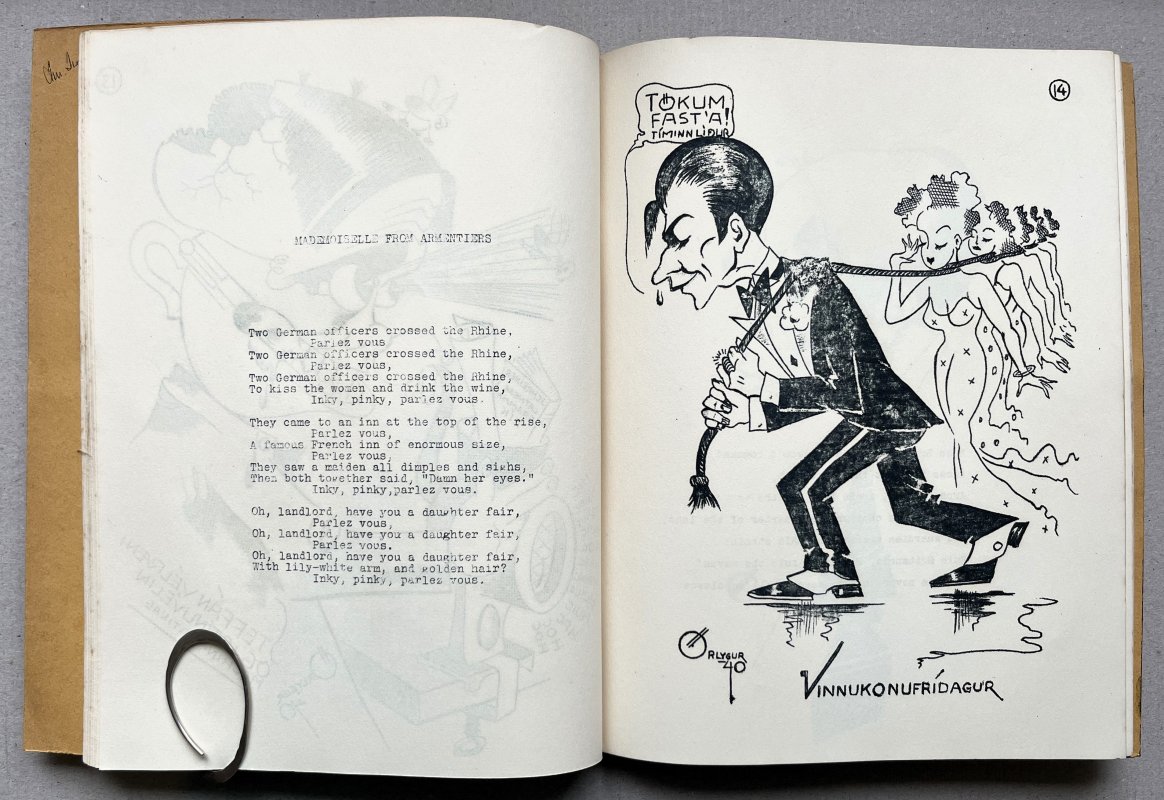 MADEMOISELLE FROM ARMENTIERS
Two German officers crossed the Rhine,
Parlez vous
Two German officers crossed the Rhine,
Parlez vous,
Two German officers crossed the Rhine,
To kiss the women and drink the wine,
Inky, pinky, parlez vous.
They came to an inn at the top of the rise,
Parlez vous,
A famous French inn of enormous size,
Parlez vous,
They saw a maiden all dimples and sighs,
Then both together said, "Damn her eyes."
Inky, pinky,parlez vous.
Oh, landlord, have you a daughter fair,
Parlez vous,
Oh, landlord, have you a daughter fair,
Parlez vous.
Oh, landlord, have you a daughter fair,
With lily-white arm, and golden hair?
Inky, pinky, parlez vous.
14
TÖKUM
FAST'A!
TÍMINN LÍÐUR
ÖRLYGUR
'40
VINNUKONUFRÍDAGUR